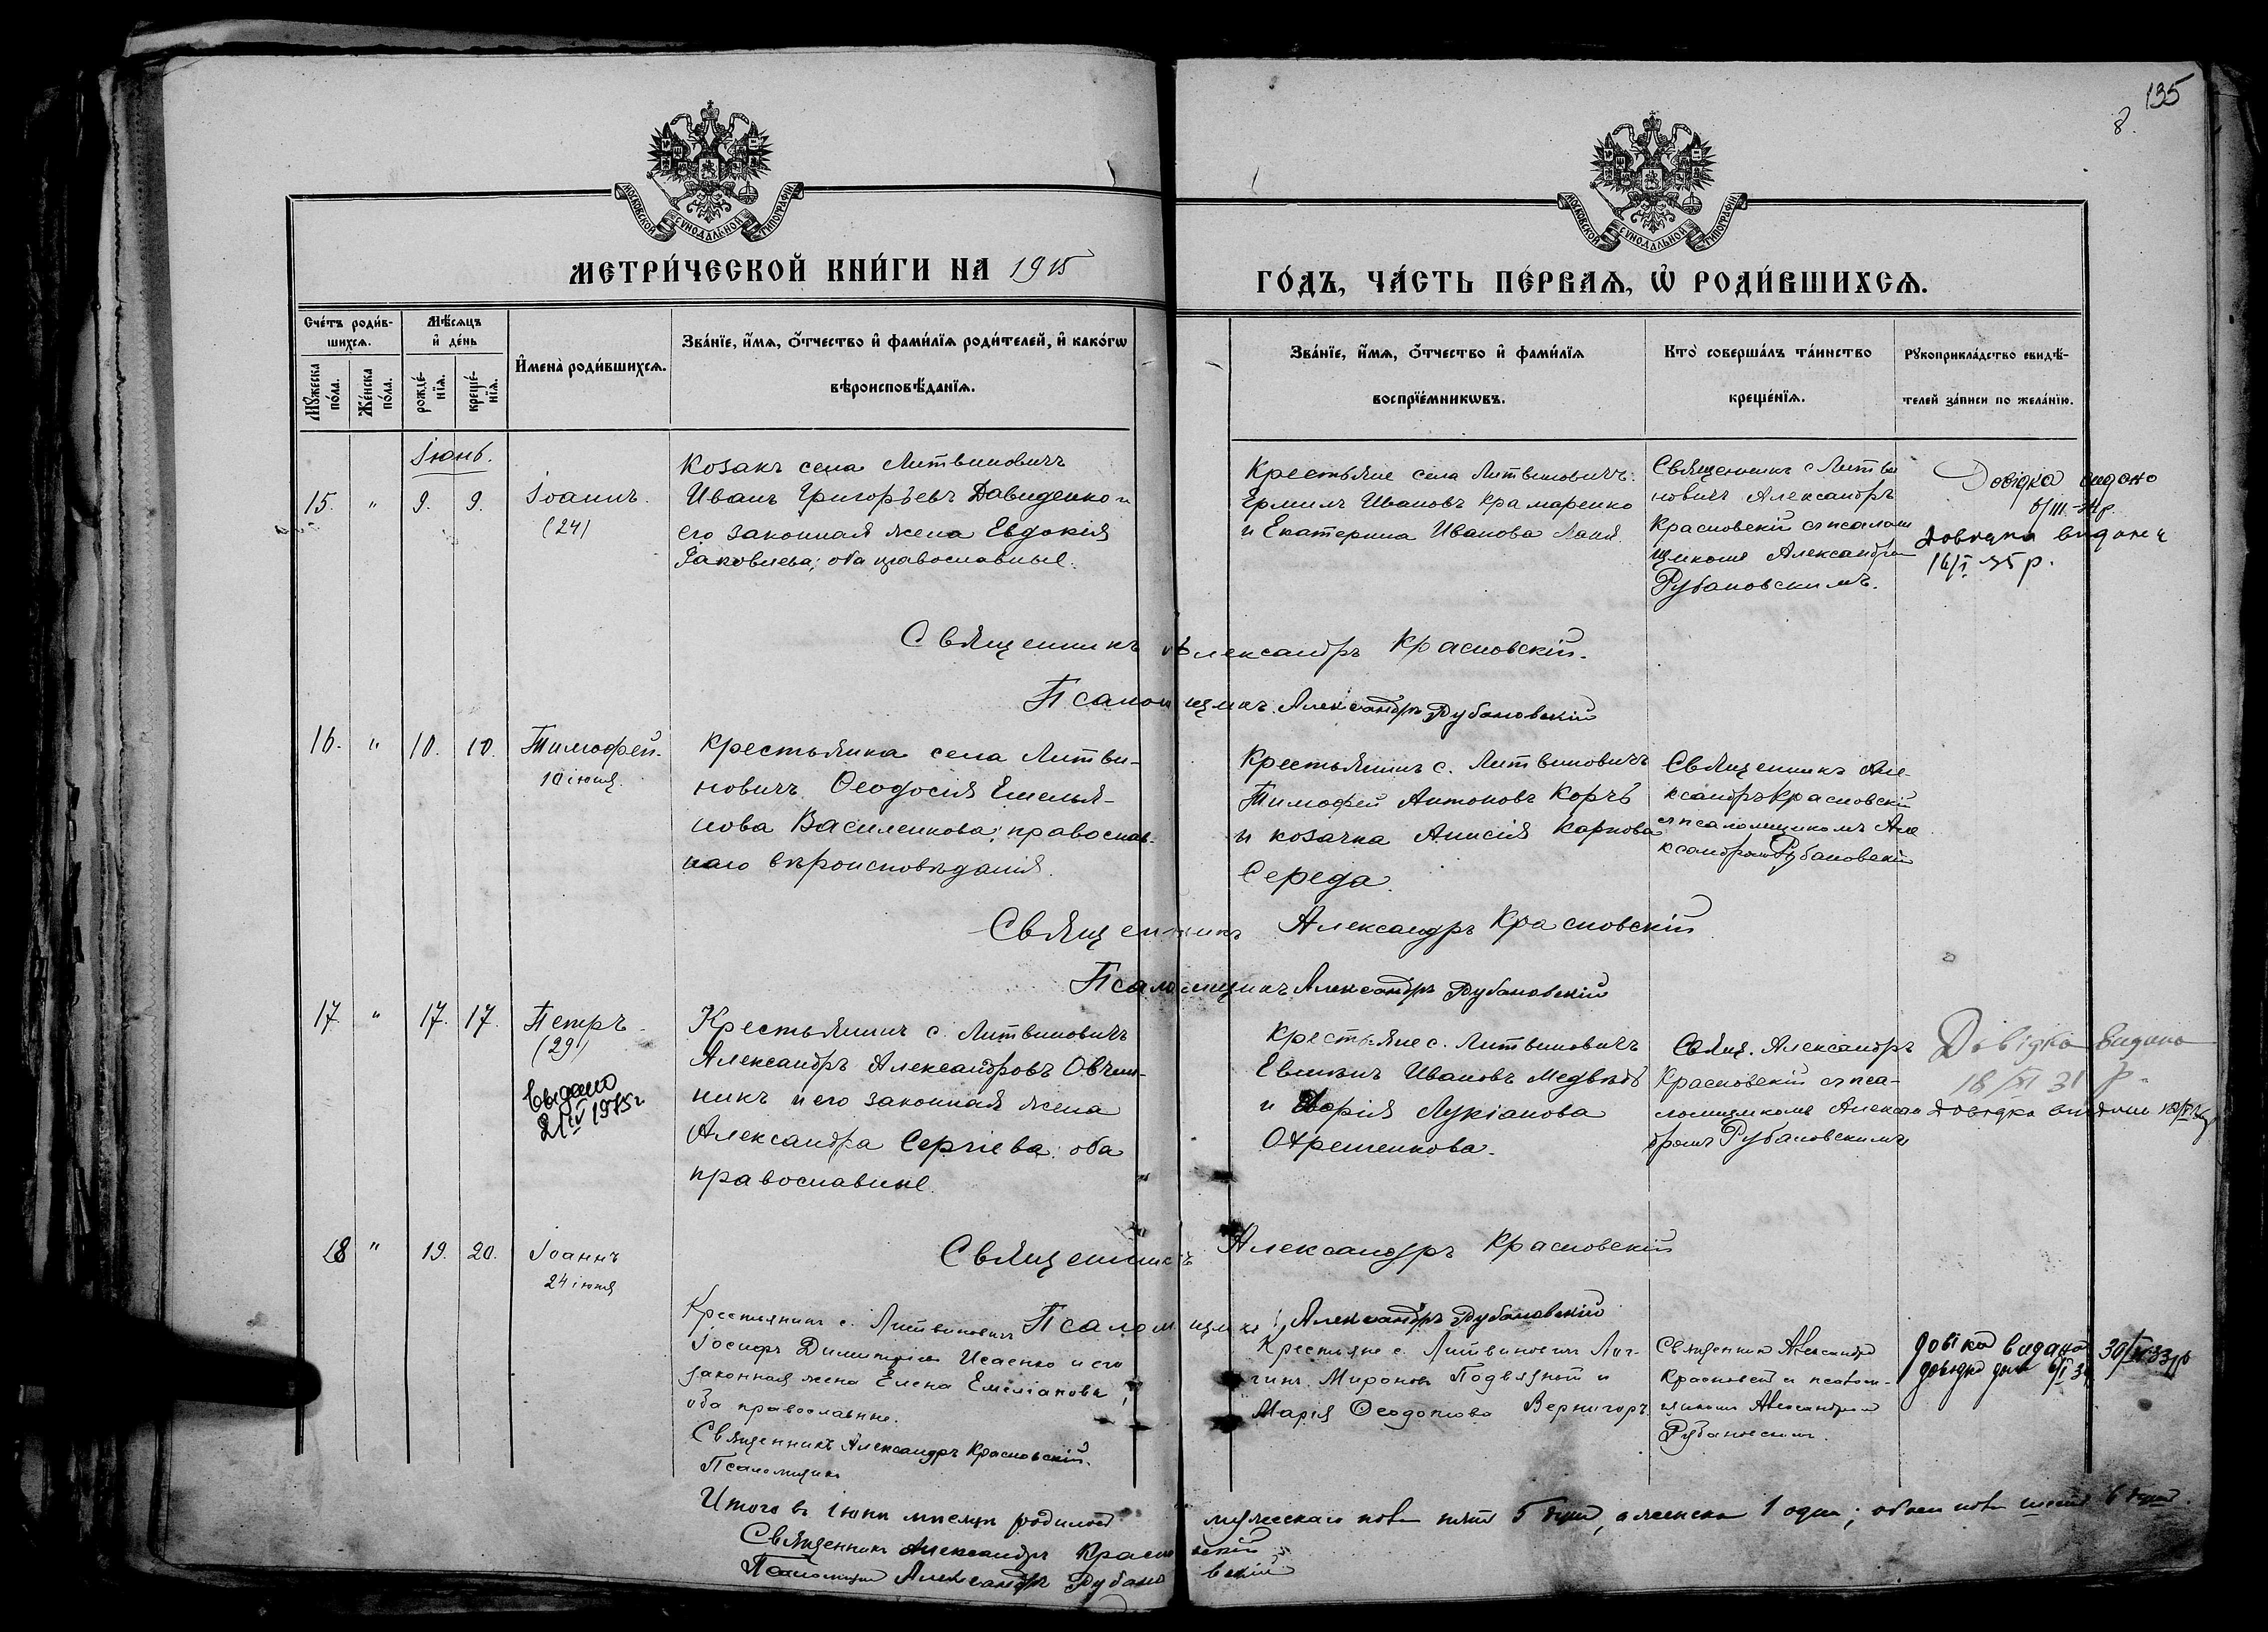 135
8.
МОСКОВСКОЙ СѴНОДАЛЬНОЙ ТИПОГРАФІИ
МОСКОВСКОЙ СѴНОДАЛЬНОЙ ТИПОГРАФІИ
МЕТРИ́ЧЕСКОЙ КНИ́ГИ НА 1915
ГО́ДЪ, ЧА́СТЬ ПЕ́РВАѦ, Ѡ҆ РОДИ́ВШИХСѦ.
Сче́тъ роди́в-
шихсѧ.
Мѣ́сѧцъ
и҆ де́нь
Мꙋ́жеска
по́ла.
Же́нска
по́ла.
рожде́-
нїѧ.
креще́-
нїѧ.
И҆мена̀ роди́вшихсѧ.
Зва́нїе, и҆́мѧ, о҆́тчество и҆ фами́лїѧ роди́телей, и҆ како́гѡ
вѣроисповѣ́данїѧ.
Зва́нїе, и҆́мѧ, о҆́тчество и҆ фами́лїѧ
воспрїе́мникѡвъ.
Кто̀ соверша́лъ та́инство
креще́нїѧ.
Рꙋкоприкла́дство свидѣ́-
телей за́писи по жела́нїю.
Іюнь.
15. " 9. 9.
Іоаннъ.
(24)
Козакъ села Литвиновичъ
Иванъ Григорьевъ Давиденко и
его законная жена Евдокія
Іаковлева; оба православные.
Крестьяне села Литвиновичъ:
Ермилъ Ивановъ Крамаренко
и Екатерина Иванова
Священникъ с Литви
новичъ Александръ
Красновскій съ псалом
щикомъ Александром
Рубановскимъ.
Довідка видано
6/III-34р.
довидка видана
16/I 35 р.
Священникъ Александръ Красновскій.
Псаломщикъ Александръ Рубановскій
16. " 10. 10.
Тимофей.
10 іюня.
Крестьянка села Литви-
новичъ Ѳеодосія Емелья-
нова Василенкова; православ-
наго вѣроисповѣданія.
Крестьянинъ с. Литвиновичъ
Тимофей Антоновъ Коржъ
и козачка Анисія Карпова
Середа.
Священникъ Але-
ксандръ Красновскій
съ псаломщикомъ Але
ксандромъ Рубановскій
Священникъ Александръ Красновскій
Псаломщикъ Александръ Рубановскій
17. " 17. 17.
Петръ.
(29)
Выдано
21/IV 1915 г
Крестьянинъ с. Литвиновичъ
Александръ Александровъ Овчин-
никъ и его законная жена
Александра Сергіева: оба
православные.
Крестьяне с. Литвиновичъ
Ивановъ Медвѣдь
и Марія Лукіанова
Охрешенкова.
Свящ. Александръ
Красновскій съ пса-
ломщикомъ Алексан
дромъ Рубановскимъ
Довідка видана
18/XI 31 р.
довідка видана
Священникъ Александръ Красновскій
Псаломщикъ Александръ Рубановскій
18 " 19. 20.
Іоаннъ
24 іюня
Крестьянинъ с. Литвиновичъ
Іосифъ Димитріевъ Исаенко и его
законная жена Елена Емеліанова,
оба православные.
Крестьяне с. Литвиновичъ Лог-
гинъ Мироновъ Подвязной и
Марія Ѳеодотова Вернигоръ
Священникъ Александръ
Красновскій и псалом-
щикомъ Александромъ
Рубановскимъ.
довідка видана 30/ 33 р
довідка
Священникъ Александръ Красновскій.
Псаломщикъ
Итого въ іюнѣ мѣсяцѣ родилось мужескаго пола пять 5 душ, а женска 1 одна; обоего пола шесть 6 душ.
Священникъ Александръ Красновскій
Псаломщикъ Александръ Рубановскій